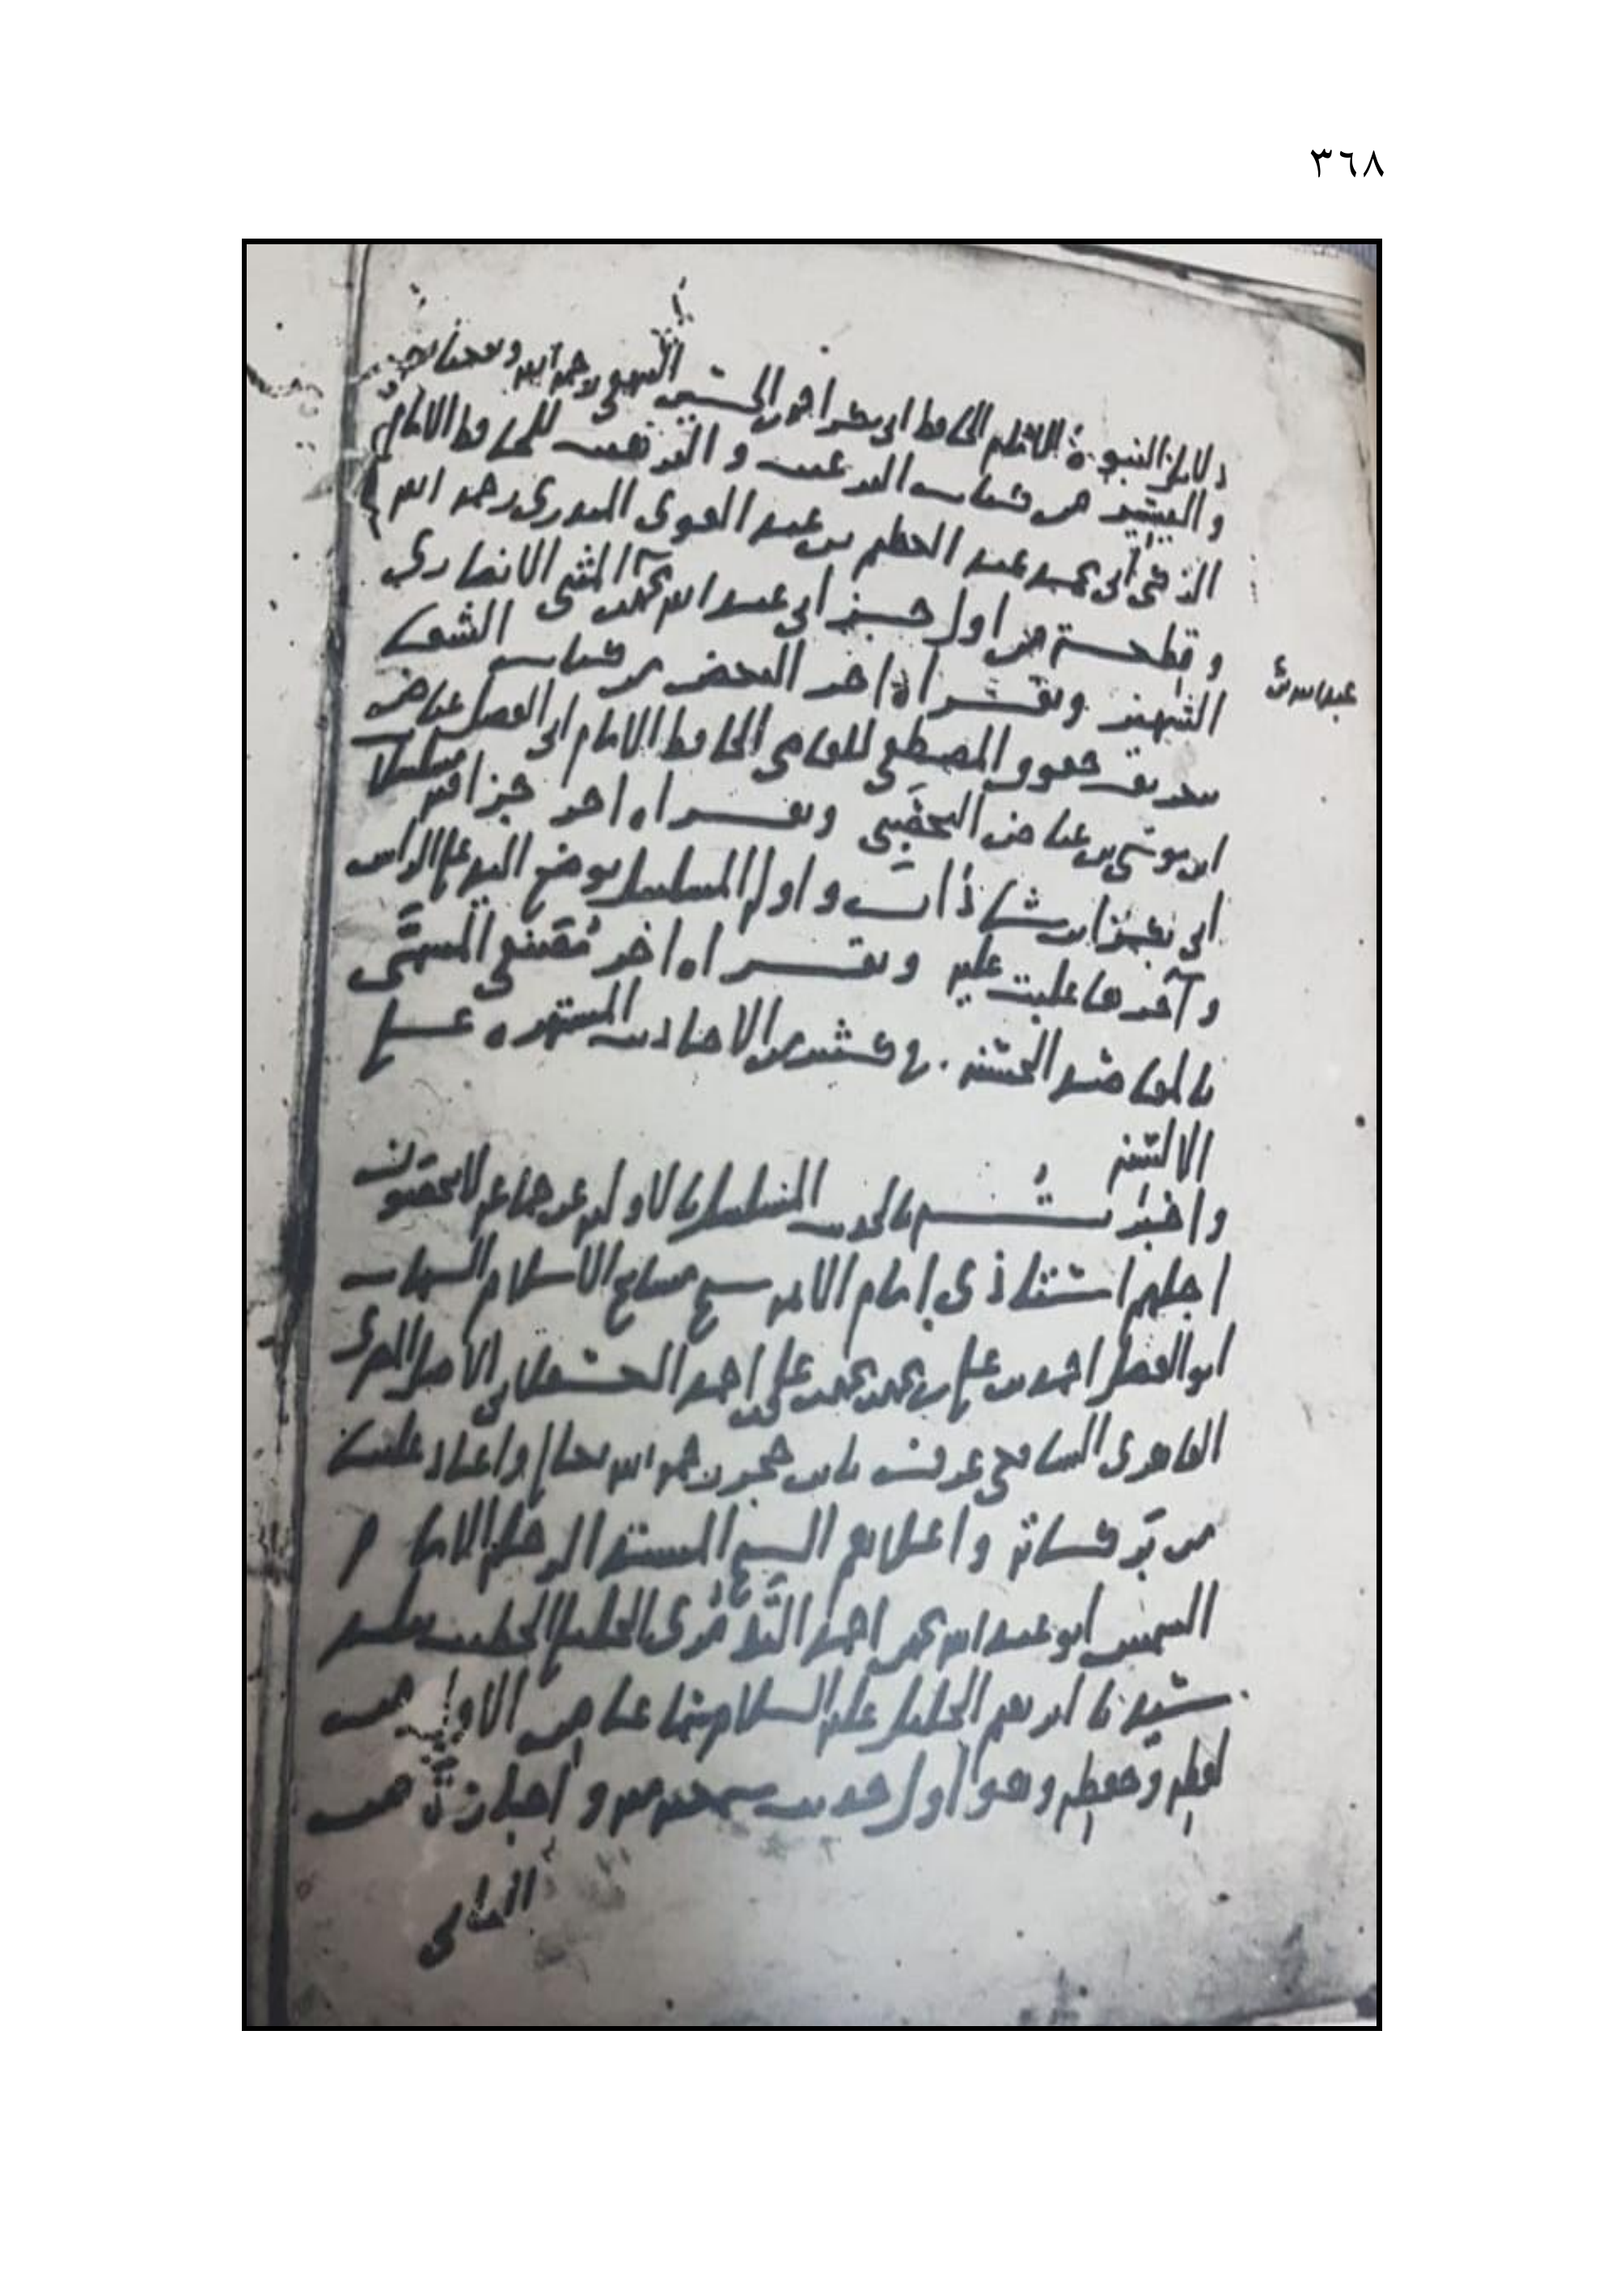 ٣٦٨
دلائل النبوة للامام الحافظ ابي بكر احمد بن الحسين البيهقي رحمه الله ونفعنا به
واليسير من كتاب الترغيب والترهيب للحافظ الامام
الزكي ابي محمد عبد العظيم بن عبد القوي المنذري رحمه الله
وقطعة من اول جزء ابي عبد الله محمد بن المثنى الانصاري
عبد الله بن
الشهير وبقراءة اخر البعض من كتاب الشفا
بتعريف حقوق المصطفى للقاضي الحافظ الامام ابي الفضل عياض
ابن موسى بن عياض اليحصبي وبقراءة اخر جزءا فيه مسلسلات
ابي بكر ابن شاذان واول المسلسل بوضع اليد على الراس
وآخرها عليه وبقراءة اخر المسمى
بالمقاصد الحسنة في كثير من الاحاديث المشتهرة على
الالسنة
واخبرتـــهم بالحديث المسلسل بالاولية عن جماعة لا يحصون
اجلهم استاذي امام الائمة شيخ مشايخ الاسلام الشهاب
ابو الفضل احمد بن علي بن محمد بن محمد بن علي بن احمد العسقلاني الاصل المصري
القاهري الشافعي عرف بابن حجر رحمه الله تعالى واعاد علينا
من بركاته واعلاهم الشيخ المسند الرحلة الامام
الشمس ابو عبد الله محمد بن احمد التدمري الخليلي الخطيب ببلد
سيدنا ابرهيم الخليل عليه السلام سماعا من الاول من
لفظه وحفظه وهو اول حديث سمعته منه واجازة من
الثاني